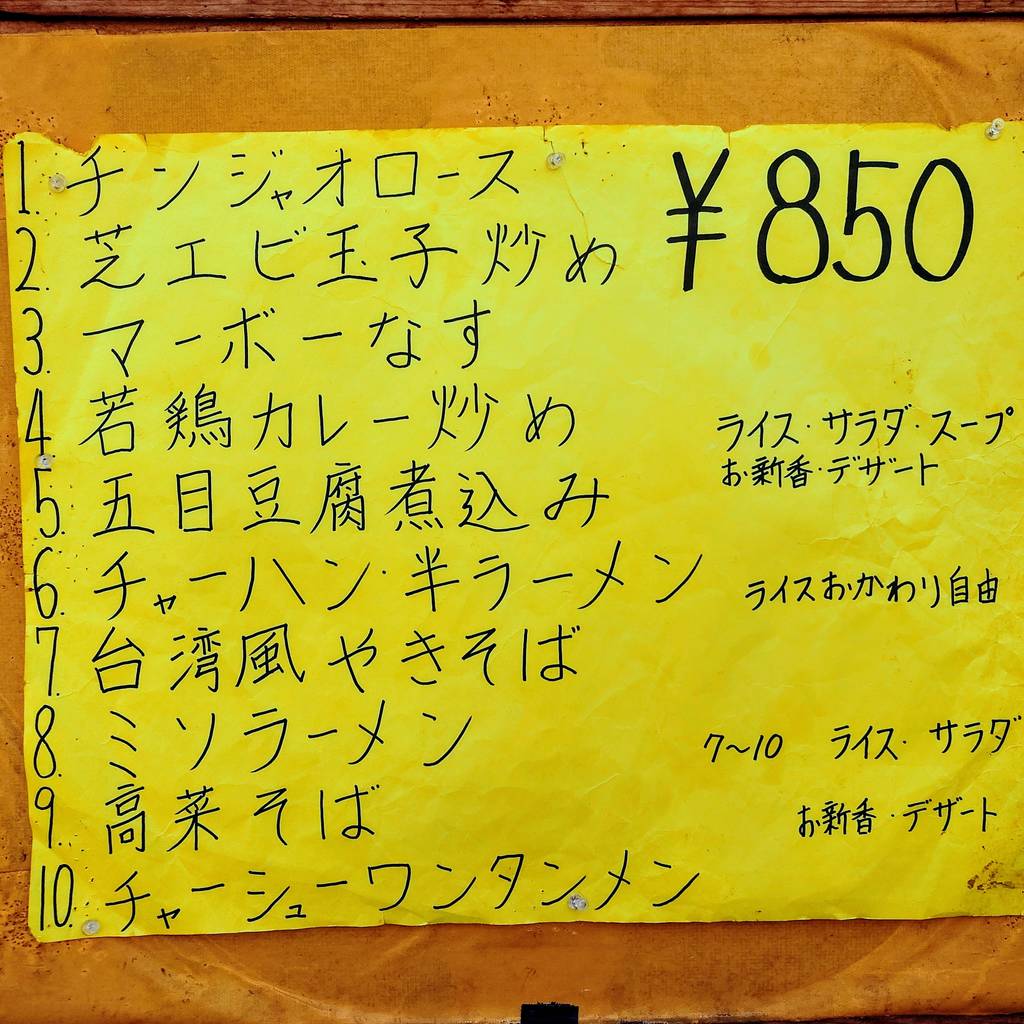 1. チンジャオロース ¥850
2. 芝エビ玉子炒め
3. マーボーなす
4 若鶏カレー炒め
ライス・サラダ・スープ
お新香・デザート
5. 五目豆腐煮込み
6. チャーハン・半ラーメン
ライスおかわり自由
7. 台湾風やきそば
8. ミソラーメン
7〜10 ライス・サラダ
お新香・デザート
9. 高菜そば
10. チャーシューワンタンメン